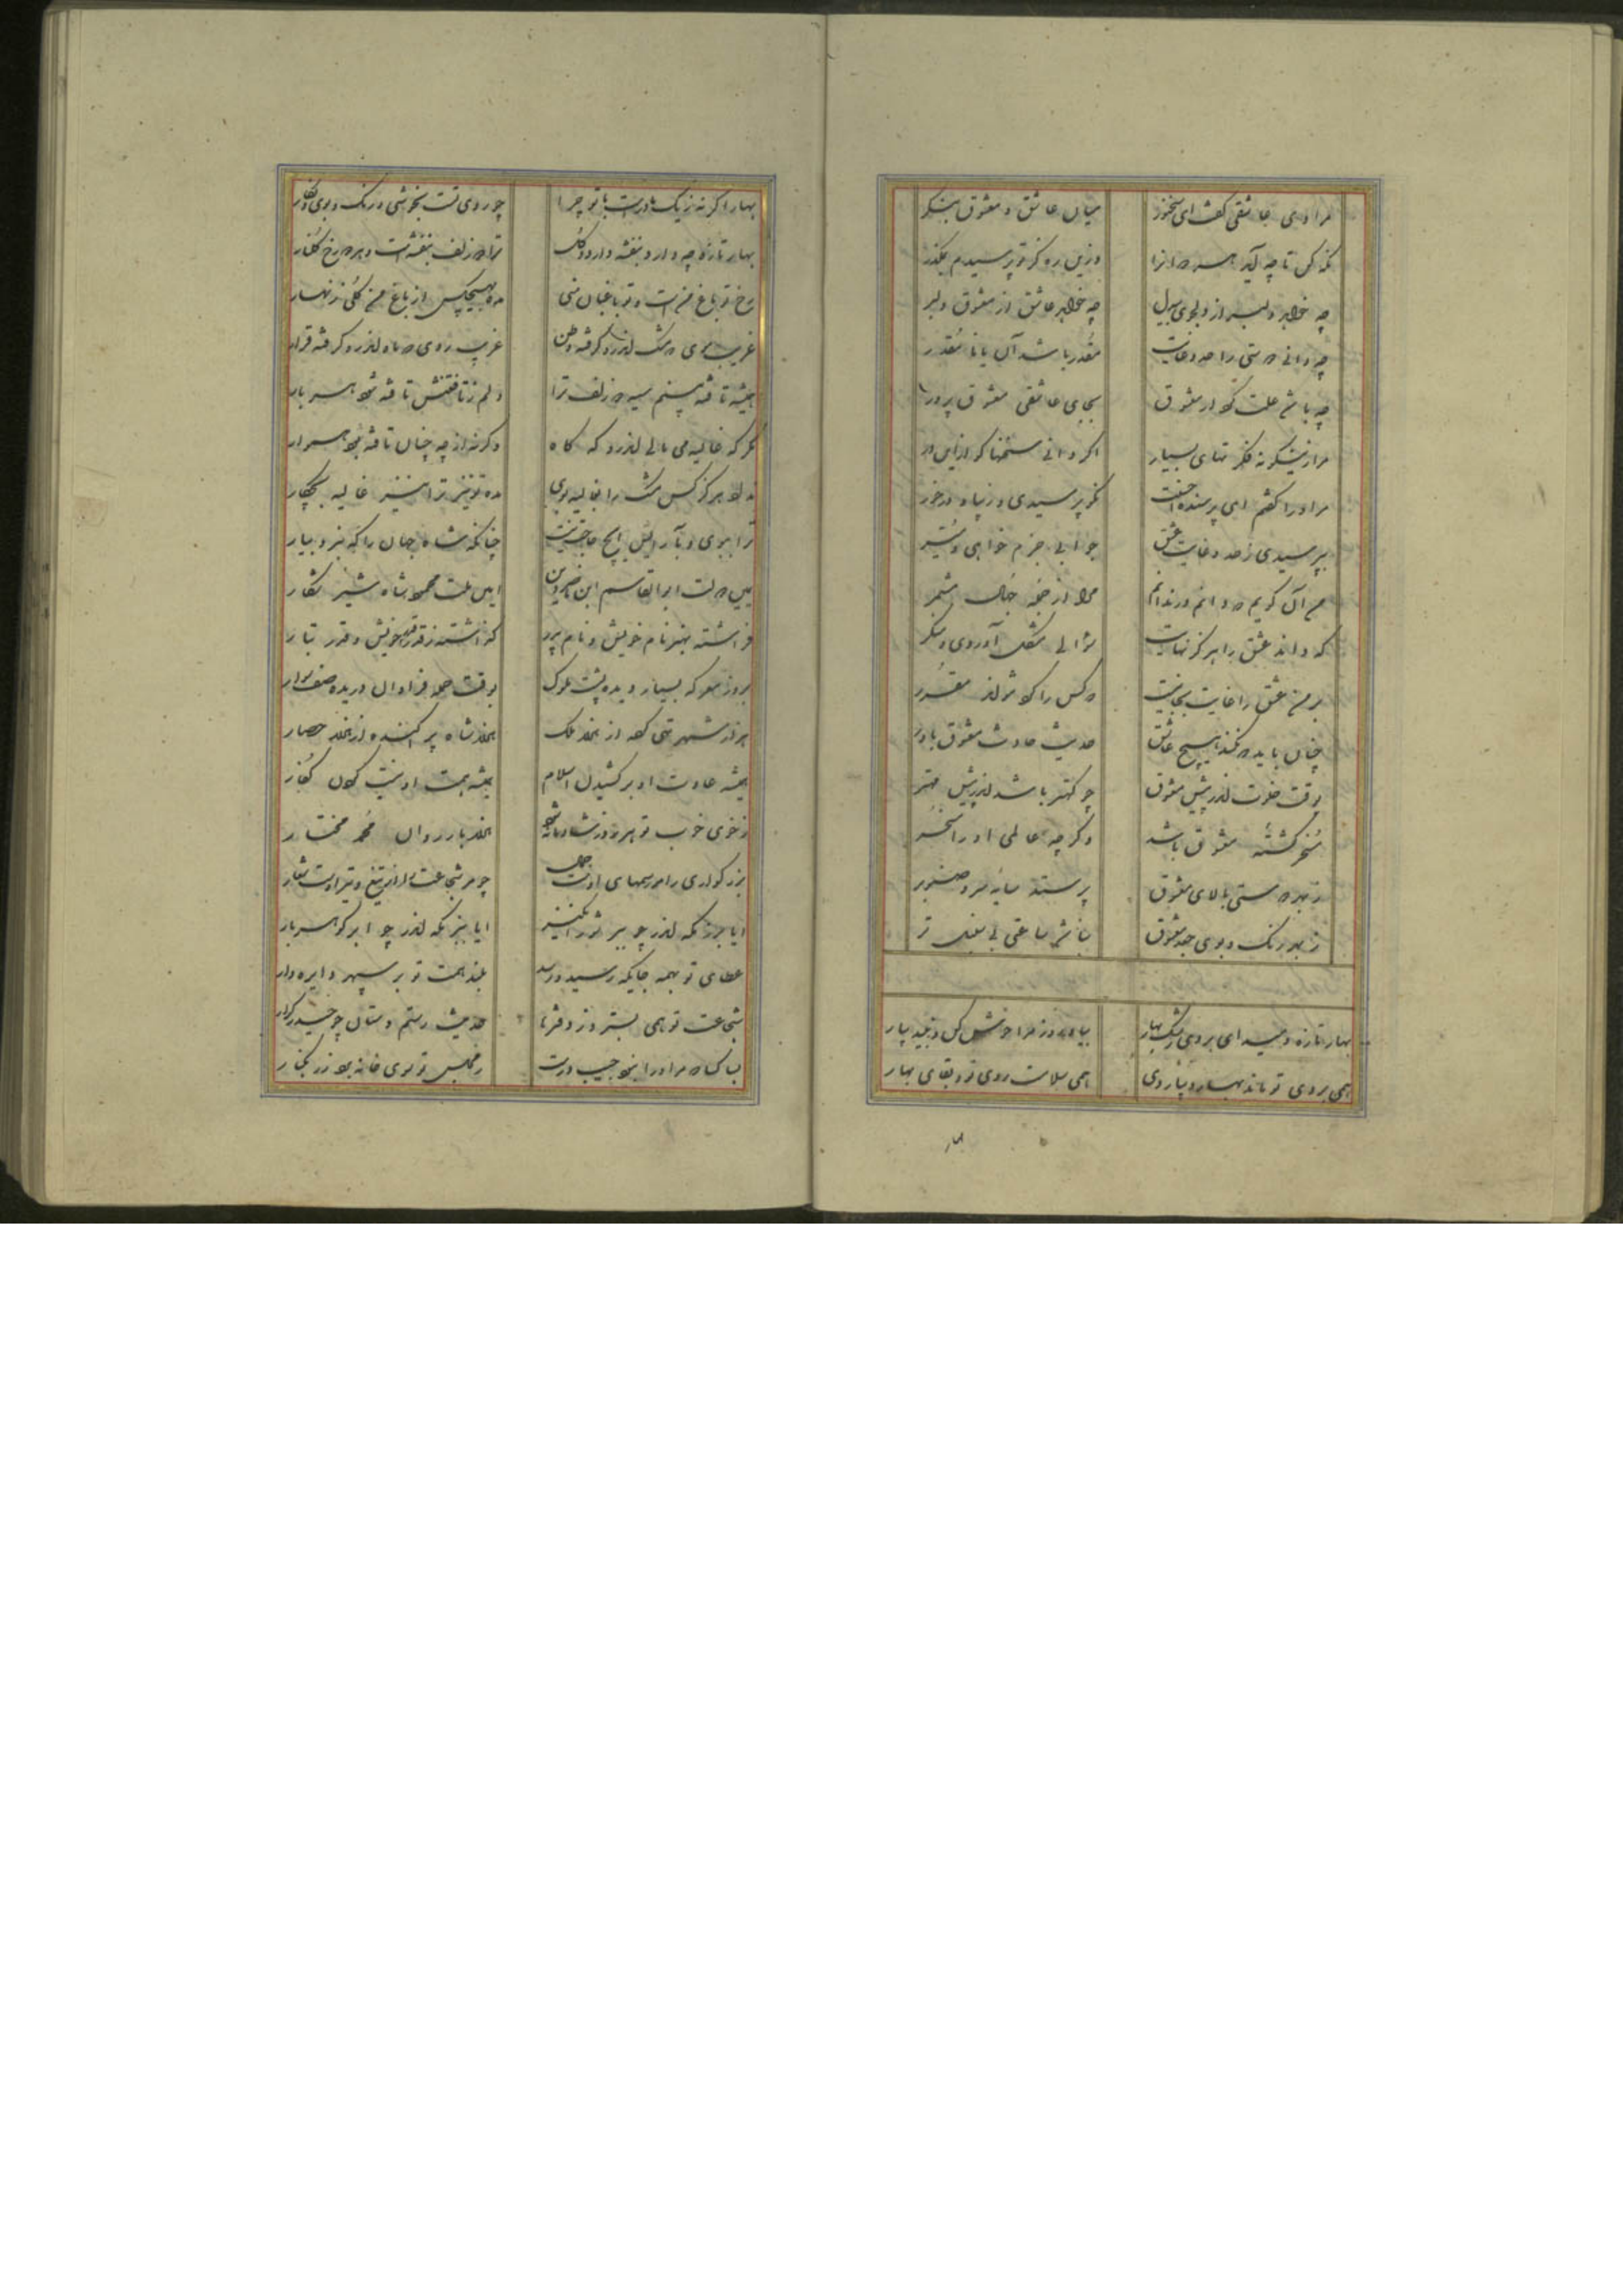 مرا دی عاشقی گفت ای سخنور میان عاشق و معشوق بنگر
نگه کن تا چه آید هر دوانرا وزین ره کز تو پرسیدم بمگذر
چه خواهد دلبر از دلجوی بیدل چه خواهد عاشق از معشوق دلبر
چه دانی دوستی را حد و غایت مقدر باشد آن یا نا مقدر
چه باشد علت کردار معشوق بجای عاشقی معشوق پرور
مرا زینگونه فکرتهای بسیار اگر دانی سخنها گو ازین در
مر او را گفتم ای پرسنده احسنت نکو پرسیدی و زیبا و درخور
بپرسیدی ز حد و غایت عشق جوابی جزم خواهی و مفسر
من آن گویم که دانم ور ندانم مرا از جمله جهال مشمر
که داند عشق را هرگز نهایت سؤالی مشکل آوردی و منکر
بر من عشق را غایت بجائیست که کس را کو شد اندر مقدر
چنان باید که نکند هیچ عاشق حدیث حادث معشوق باور
بوقت خلوت اندر پیش معشوق چو کهتر باشد اندر پیش مهتر
مسخر گشته معشوق باشد وگر چه عالمی او را مسخر
ز بهر دوستی بالای معشوق پرستد سایه سرو و صنوبر
ز بهر رنگ و بوی جعد معشوق نباشد ساعتی بی عنبر تر
بهار تازه دمید ای بروی رشک بهار بیا و روز مرا خوش کن و نبید بیار
همی بروی تو ماند بهار دیبا روی همی سلامت روی تو و بقای بهار
بهار
بهار اگر نه ز یک مادرست با تو چرا چو روی تست بخوشی و رنگ و بوی و نگار
بهار تازه چه دارد بنفشه دارد و گل ترا دو زلف بنفشه است و هر دو رخ گلنار
رخ تو باغ منست و تو باغبان منی مده بهیچکس از باغ من گلی زنهار
غریب موی که مشک اندرو گرفته وطن غریب روی که ماه اندرو گرفته قرار
همیشه تافته بینم سیه دو زلف ترا دلم ز تافتنش تافته شود هر بار
مگر که غالیه می مالی اندرو گه گاه وگرنه از چه چنان تافته بود هموار
نداد هرگز کس مشک را بغالیه بوی مده تو نیز ترا نیز غالیه بچکار
ترا ببوی و بآرایش هیچ حاجت نیست چنانکه شاه جهان را گه نبرد بیار
یمین دولت ابوالقاسم ابن ناصر دین امین ملت محمود شاه شیر شکار
فراشته بهنر نام خویش و نام پدر گذاشته ز قدر قدر خویش و قدر تبار
بروز معرکه بسیار دیده پشت ملوک بوقت حمله فراوان دریده صف سوار
هزار شهر تهی کرد از هزار ملک هزار شاه پراکنده از هزار حصار
همیشه عادت او بر کشیدن اسلام همیشه همت او نیست کردن کفار
ز خوی خوب تو هر روز شادمانه شود هزار بار روان محمد مختار
بزرگواری را رسمهای اوست جمال چو مر شجاعت را تیغ تیز اوست شعار
ایا برزمگه اندر چو ببر شور انگیز ایا ببزمگه اندر چو ابر گوهر بار
عطای تو بهمه جایگه رسید و رسد بلند همت تو بر سپهر دایره وار
شجاعت تو همی بسترد ز دفترها حدیث رستم دستان و حیدر کرار
بسا کسا که مر او را نبود جیب درست ز مجلس تو سوی خانه برد زر بکنار